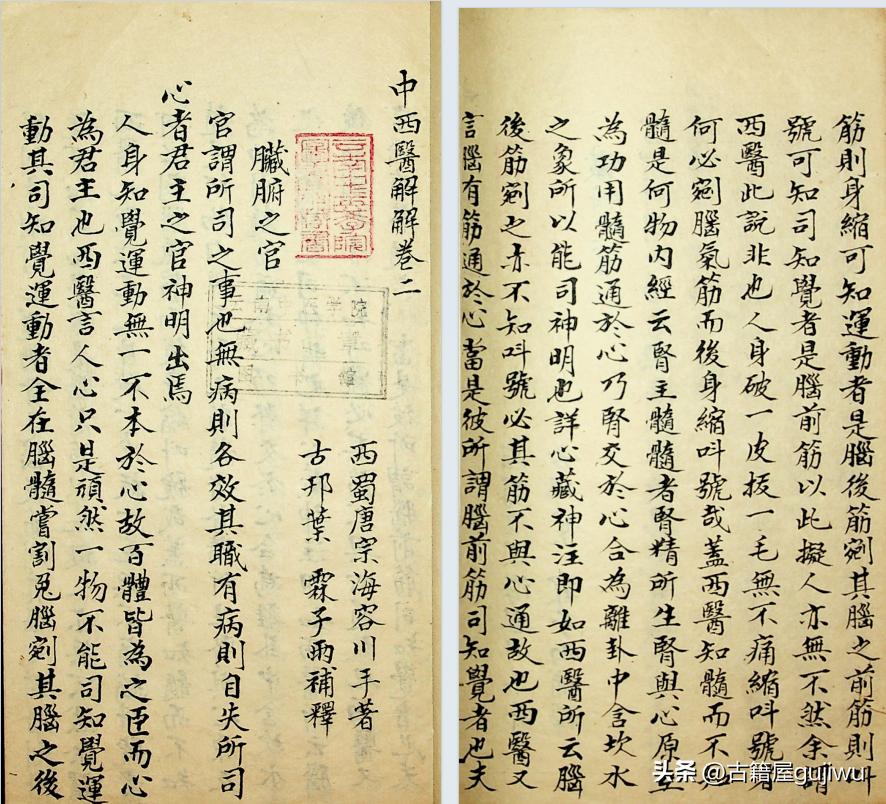 中西醫解解卷二
西蜀唐宗海容川手著
古邗葉霖子雨補釋
臟腑之官
官謂所司之事也無病則各效其職有病則自失所司
心者君主之官神明出焉
人身知覺運動無一不本於心故百體皆為之臣而心
為君主也西醫言人心只是頑然一物不能司知覺運
動其司知覺運動者全在腦髓嘗割兔腦剜其腦之後
筋則身縮可知運動者是腦後筋剜其腦之前筋則叫
號可知司知覺者是腦前筋以此擬人亦無不然余謂
西醫此說非也人身破一皮拔一毛無不痛縮叫號者
何必剜腦氣筋而後身縮叫號哉蓋西醫知髓而不知
髓是何物內經云腎主髓髓者腎精所生腎與心原
為功用髓筋通於心乃腎交於心合為離卦中含坎水
之象所以能司神明也詳心藏神注即如西醫所云腦
後筋剜之亦不知叫號必其筋不與心通故也西醫又
言腦有筋通於心當是彼所謂腦前筋司知覺者也夫
头条 @古籍屋gujiwu